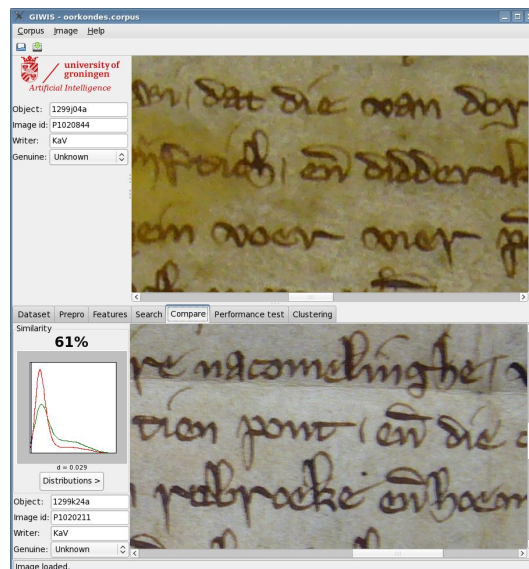 GIWIS - oorkondes.corpus
Corpus Image Help
university of
groningen
Artificial Intelligence
Object: 1299j04a
Image id: P1020844
Writer: KaV
Genuine: Unknown
dat die van
en̄ didderik
voer vier
Dataset Prepro Features Search Compare Performance test Clustering
Similarity
61%
d = 0.029
Distributions >
Object: 1299k24a
Image id: P1020211
Writer: KaV
Genuine: Unknown
re nacomelinghe
tien pont en̄ die
en̄
Image loaded.